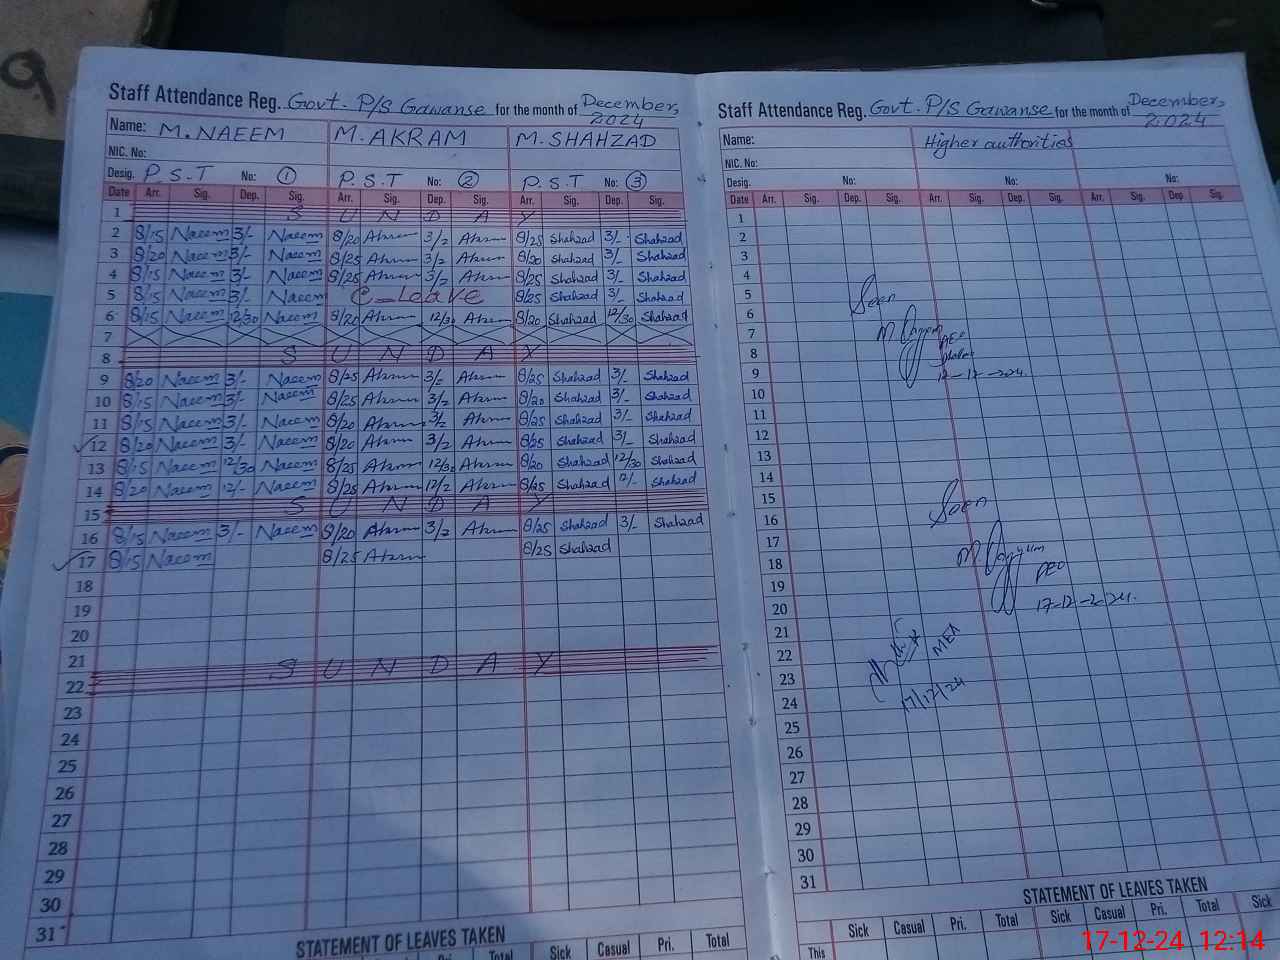 Staff Attendance Reg. Govt. P/S Gawanse for the month of December, 2024
Name: M. NAEEM M. AKRAM M. SHAHZAD
NIC. No:
Desig. P.S.T No: 1 P.S.T No: 2 P.S.T No: 3
Date Arr. Sig. Dep. Sig. Arr. Sig. Dep. Sig. Arr. Sig. Dep. Sig.
1 S U N D A Y
2 8/15 Naeem 3/- Naeem 8/20 Akram 3/2 Akram 8/25 Shahzad 3/- Shahzad
3 8/20 Naeem 3/- Naeem 8/25 Akram 3/2 Akram 8/20 Shahzad 3/- Shahzad
4 8/15 Naeem 3/- Naeem 8/25 Akram 3/2 Akram 8/25 Shahzad 3/- Shahzad
5 8/15 Naeem 3/- Naeem C-Leave 8/25 Shahzad 3/- Shahzad
6 8/15 Naeem 12/30 Naeem 8/20 Akram 12/30 Akram 8/20 Shahzad 12/30 Shahzad
7
8 S U N D A Y
9 8/20 Naeem 3/- Naeem 8/25 Akram 3/- Akram 8/25 Shahzad 3/- Shahzad
10 8/15 Naeem 3/- Naeem 8/25 Akram 3/2 Akram 8/20 Shahzad 3/- Shahzad
11 8/15 Naeem 3/- Naeem 8/20 Akram 3/2 Akram 8/25 Shahzad 3/- Shahzad
12 8/20 Naeem 3/- Naeem 8/20 Akram 3/2 Akram 8/25 Shahzad 3/- Shahzad
13 8/15 Naeem 12/30 Naeem 8/25 Akram 12/30 Akram 8/20 Shahzad 12/30 Shahzad
14 8/20 Naeem 12/- Naeem 8/25 Akram 12/2 Akram 8/25 Shahzad 12/- Shahzad
15 S U N D A Y
16 8/15 Naeem 3/- Naeem 8/20 Akram 3/2 Akram 8/25 Shahzad 3/- Shahzad
17 8/15 Naeem 8/25 Akram 8/25 Shahzad
18
19
20
21 S U N D A Y
22
23
24
25
26
27
28
29
30
31
STATEMENT OF LEAVES TAKEN
Sick Casual Pri. Total
Staff Attendance Reg. Govt. P/S Gawanse for the month of December, 2024
Name: Higher authorities
NIC. No:
Desig. No: No: No:
Date Arr. Sig. Dep. Sig. Arr. Sig. Dep. Sig. Arr. Sig. Dep. Sig.
1
2
3
4
5 Seen
6
7 M Qayyum
8 AEO
9 12-12-2024.
10
11
12
13
14
15
16 Seen
17
18 M Qayyum
19 AEO
20 17-12-2024.
21
22 MEA
23
24 17/12/24
25
26
27
28
29
30
31
STATEMENT OF LEAVES TAKEN
Sick Casual Pri. Total Sick Casual Pri. Total Sick
This
17-12-24 12:14